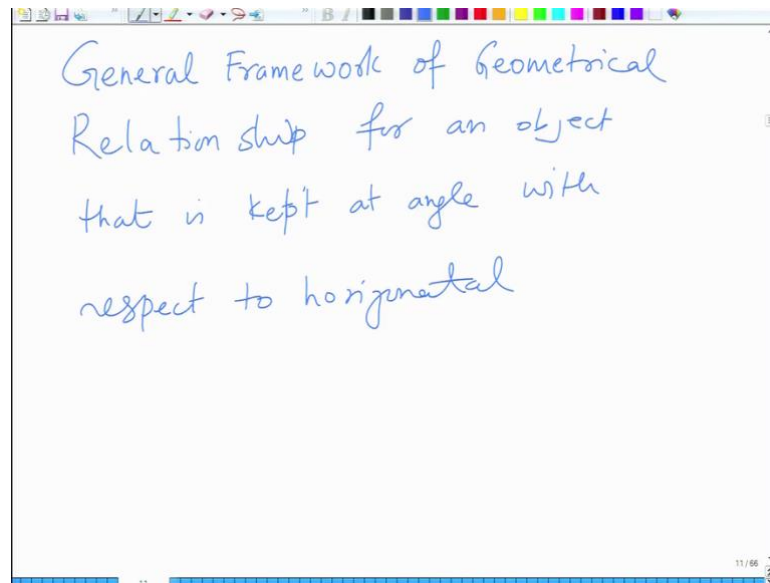 General Framework of Geometrical
Relationship for an object
that is kept at angle with
respect to horizonatal
11 / 66